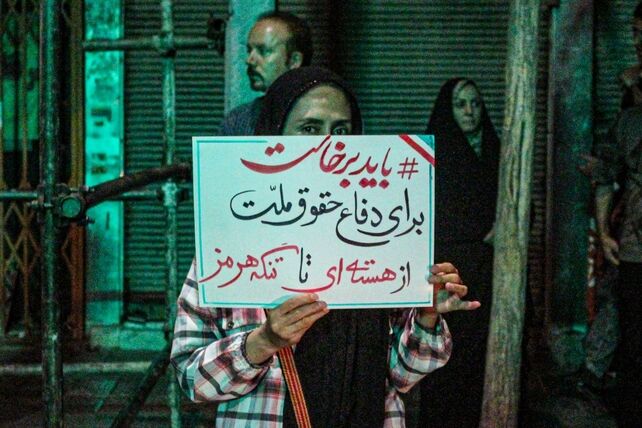 #باید برخاست
برای دفاع حقوق ملّت
از هسته‌ای تا تنگه هرمز